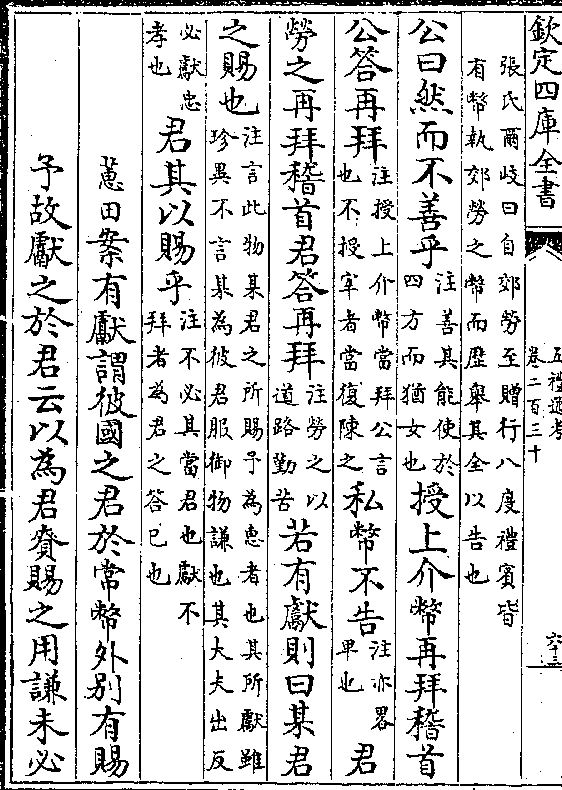 欽定四庫全書
五禮通考
卷二百三十
六十三
張氏爾岐曰自郊勞至贈行八度禮賓皆
有幣執郊勞之幣而歷舉其全以告也
公曰然而不善乎注善其能使於四方而猶女也授上介幣再拜稽首
公答再拜注授上介幣當拜公言也不授宰者當復陳之私幣不告注亦畧卑也君
勞之再拜稽首君答再拜注勞之以道路勤苦若有獻則曰某君
之賜也注言此物某君之所賜予為惠者也其所獻雖珍異不言某為彼君服御物謙也其大夫出反
必獻忠孝也君其以賜乎注不必其當君也獻不拜者為君之答已也
蕙田案有獻謂彼國之君於常幣外别有賜
予故獻之於君云以為君賚賜之用謙未必